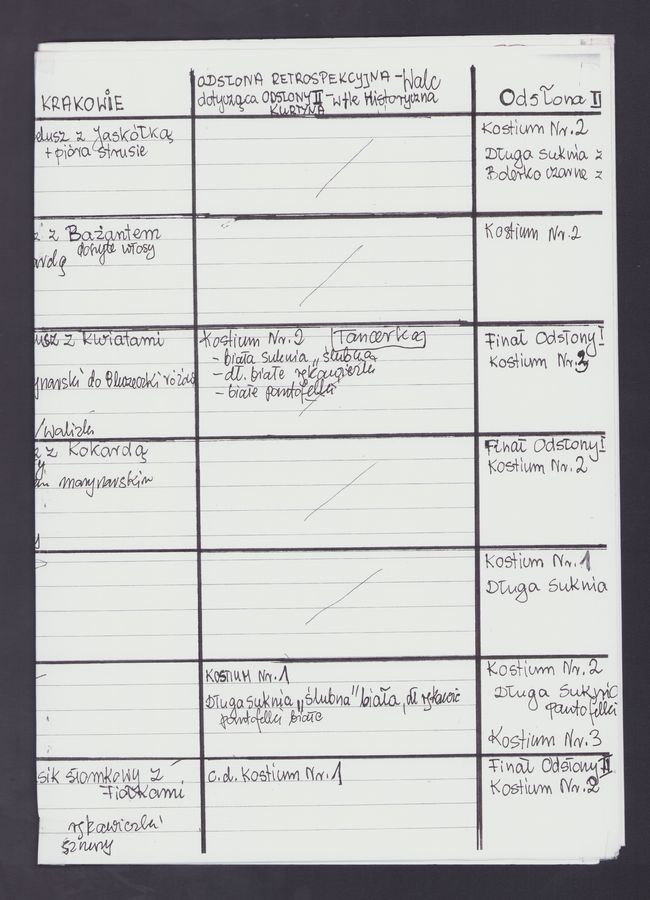 KRAKOWIE
ODSŁONA RETROSPEKCYJNA - Walc
dotycząca ODSŁONY II - w tle Historyczna
KURTYNA
Odsłona II
dusz z Jaskółką
+ pióra strusie
Kostium Nr. 2
Długa suknia z
Bolerko czarne z
z Bażantem
Kostium Nr. 2
usz z kwiatami
do Bluzeczki
Kostium Nr. 2 Tancerka
- biała suknia „ślubna
- dł. białe rękawiczki
- białe pantofelki
Finał Odsłony I
Kostium Nr. 3
z Kokardą
marynarskim
Finał Odsłony I
Kostium Nr. 2
Kostium Nr. 1
Długa suknia
KOSTIUM Nr. 1
Długa suknia „ślubna" biała, dł rękawic
pantofelki białe
Kostium Nr. 2
Długa Suknia
pantofelki
Kostium Nr. 3
sik słomkowy z
Fiołkami
rękawiczki
sznury
c.d. Kostium Nr. 1
Finał Odsłony II
Kostium Nr. 2